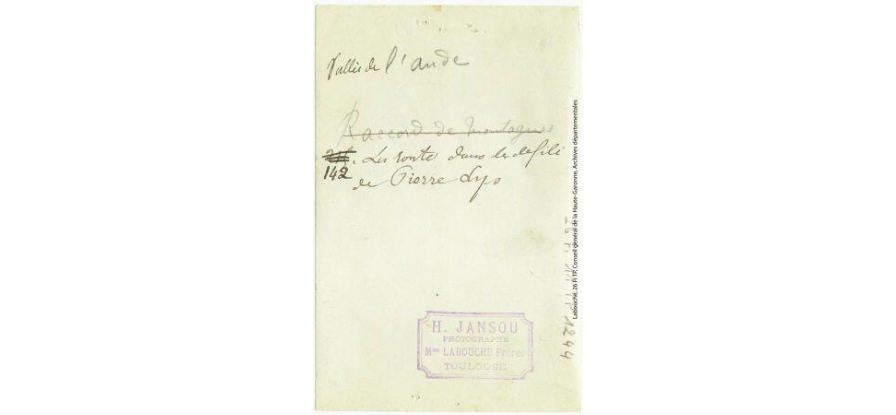 Vallée de l'aude
Raccord de montagnes
142. La route dans le défilé
de Pierre Lys
H. JANSOU
PHOTOGRAPHE
Mon LABOUCHE Frères
TOULOUSE
Labouche, 26 Fi TP, Conseil général de la Haute-Garonne, Archives départementales
1244